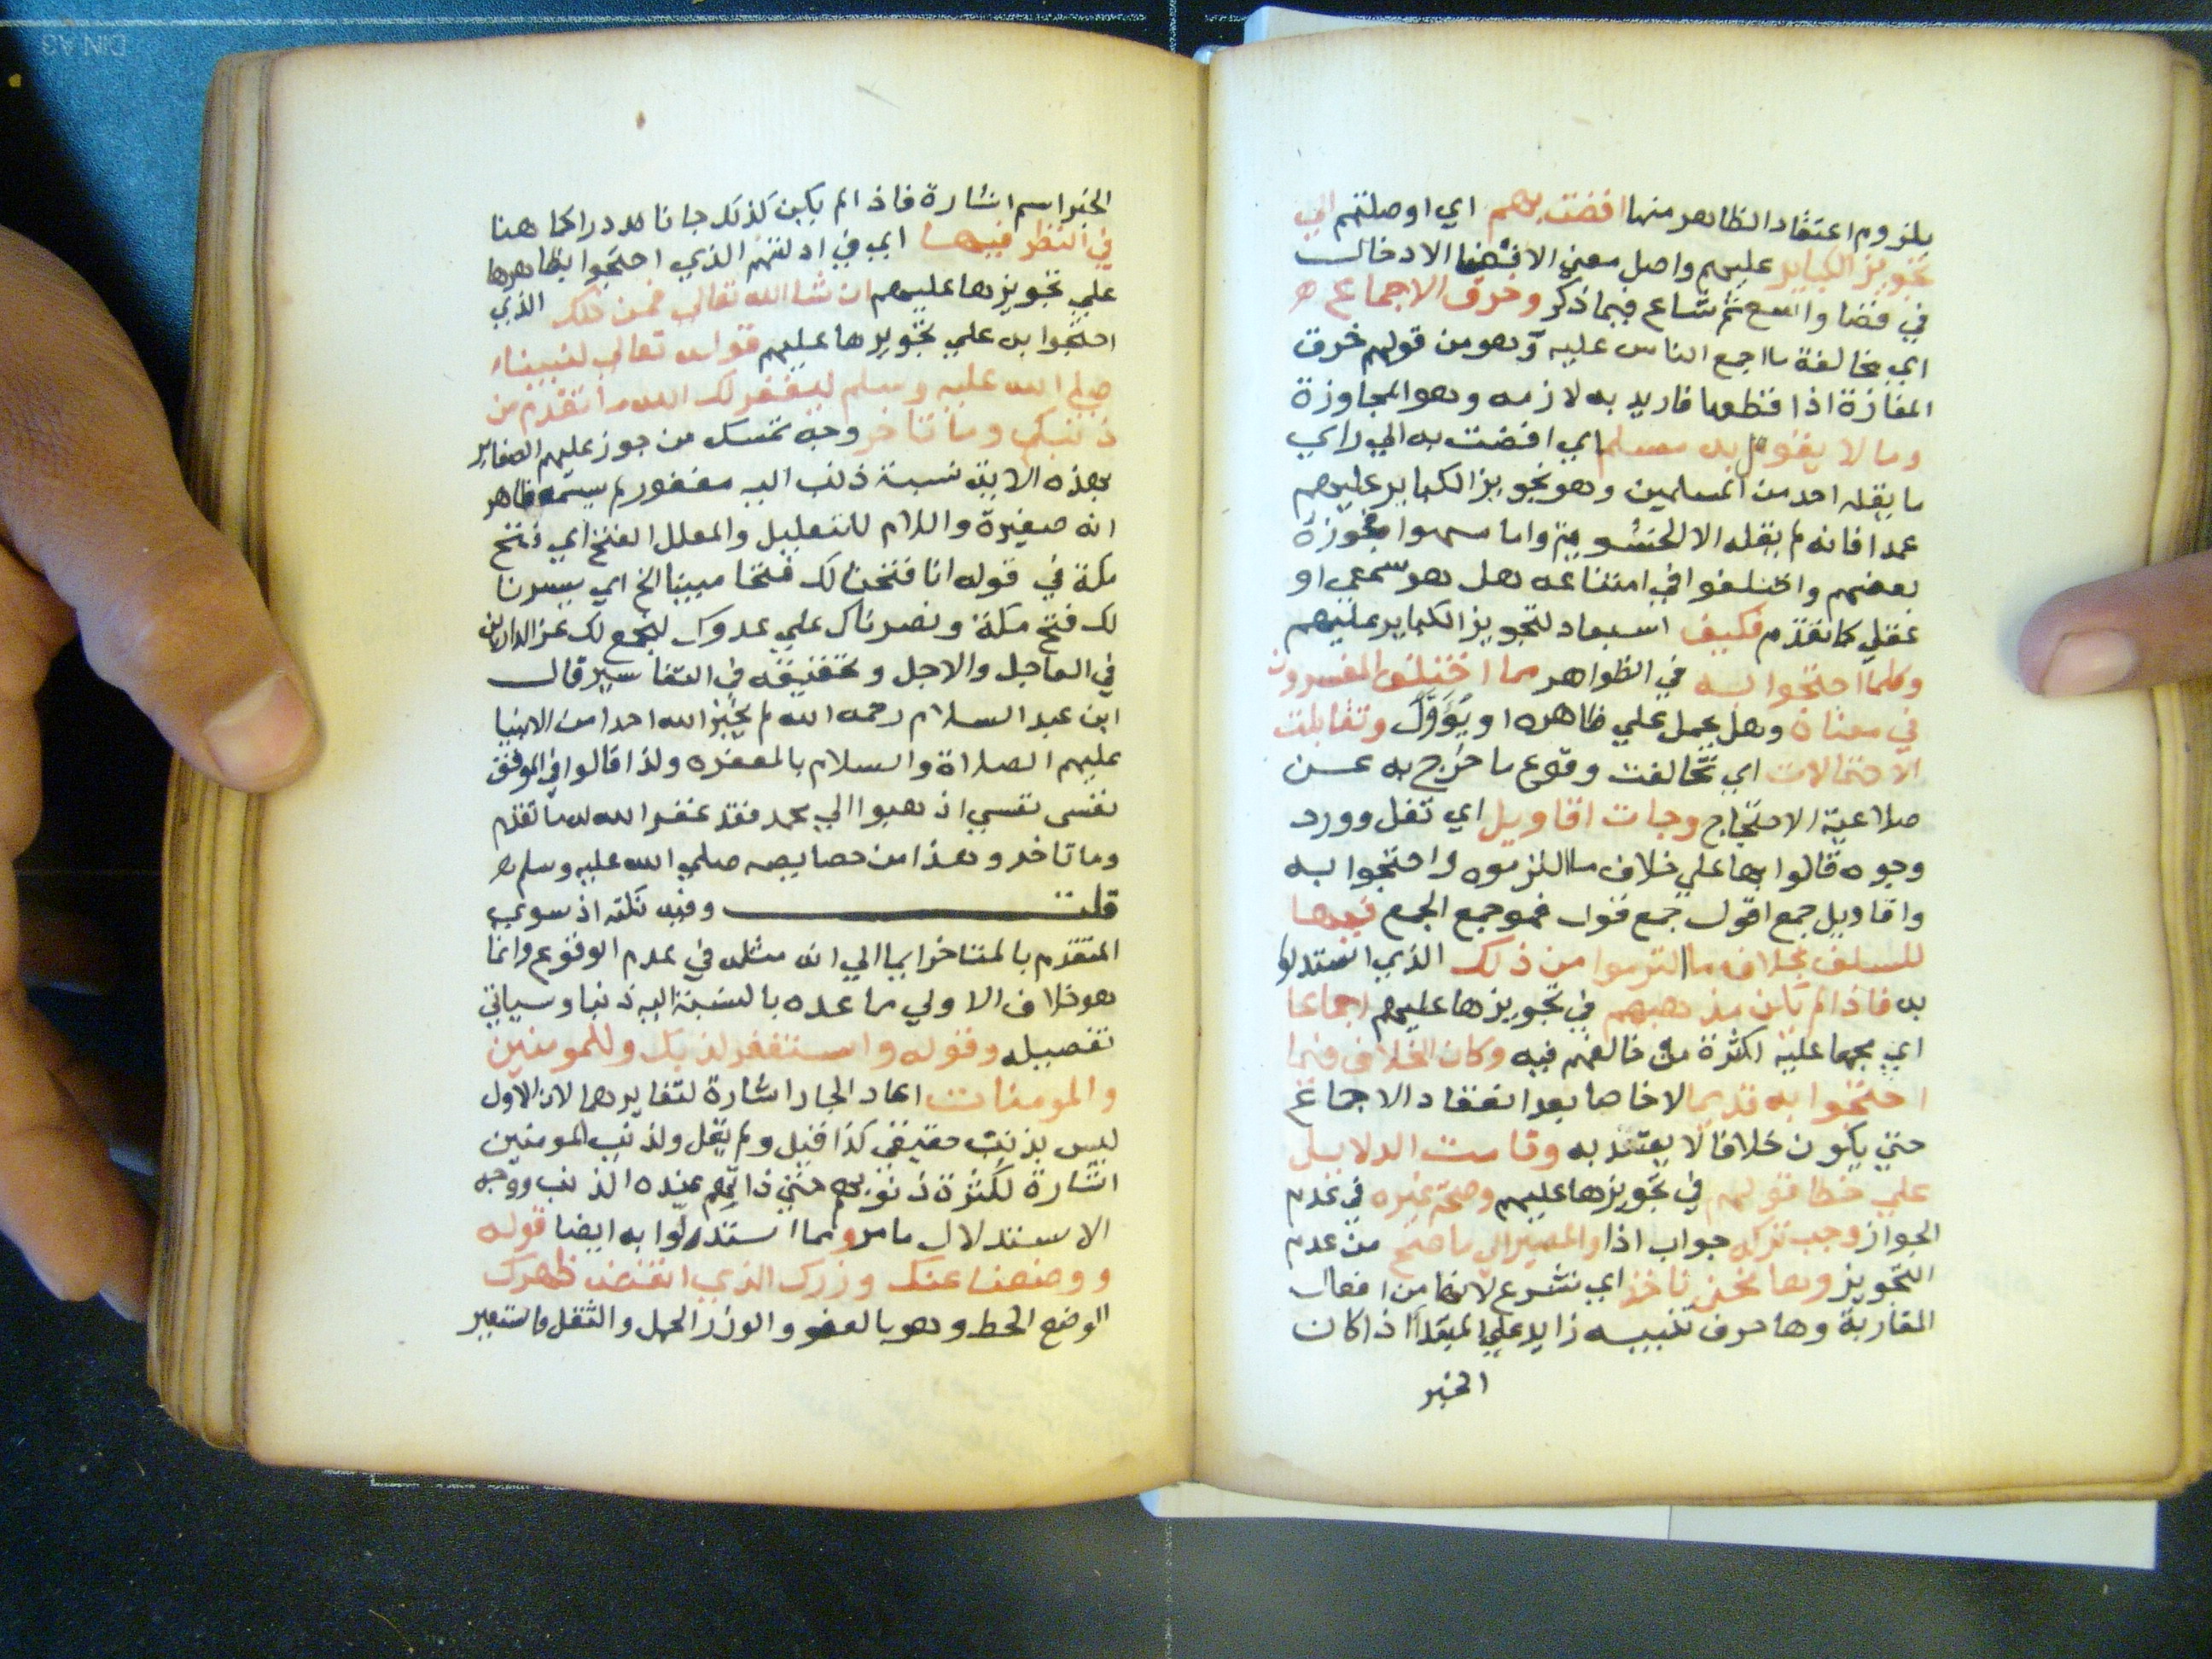 يلزوم اعتقاد الظاهر منها افضت بهم اي اوصلتهم الي
تجويز الكباير عليهم واصل معني الافضا الادخال
في فضا واسع ثم شاع فيما ذكر وخرق الاجماع
اي مخالفة ما اجمع الناس عليه وهو من قولهم خرق
المفازة اذا قطعها فاريد به لازمه وهو المجاوزة
وما لا يقول به مسلم اي افضت به الي راي
ما يقله احد من المسلمين وهو تجويز الكباير عليهم
عمدا فانه لم يقله الا الحشوية واما سهوا فجوزة
بعضهم واختلفوا في امتناعه هل هو سمعي او
عقلي كما تقدم فكيف اسبعاد لتجويز الكباير عليهم
وكلما احتجوا به في الظواهر مما اختلف المفسرون
في معناه وهل يحمل علي ظاهره او يُؤَوَّل وتقابلت
الاحتمالات اي تخالفت وقوع ما خرج به عن
صلاعية الاحتجاج وجات اقاويل اي تقل وورد
وجوه قالوا بها علي خلاف ما التزموه واحتجوا به
واقاويل جمع اقول جمع قول فهو جمع الجمع فيها
للسلف بخلاف ما التزموا من ذلك الذي استدلوا
به فاذا لم يكن مذهبهم في تجويزها عليهم اجماعا
اي مجمعا عليه لكثرة من خالفهم فيه وكان الخلاف فيما
احتجوا به قديما لا خاصا بعد انعقاد الاجماع
حتي يكون خلافا لا يعتد به وقامت الدلايل
علي خطا قولهم في تجويزها عليهم وصحة غيره في عدم
الجواز وجب تركه جواب اذا والمصير الي ما صح من عدم
التجويز وها نحن ناخذ اي نشرع لانها من افعال
المقاربة وها حرف تنبيه زايد علي المبتدا اذا كان
الخبر
الخبر اسم اشارة فاذا لم يكن كذلك جا نادرا كما هنا
في النظر فيها اي في ادلتهم الذي احتجوا بظاهرها
علي تجويزها عليهم ان شا الله تعالي فمن ذلك الذي
احتجوا به علي تجويزها عليهم قوله تعالي لنبيناء
صلي الله عليه وسلم ليغفر لك الله ما تقدم من
ذنبك وما تاخر وجه تمسك من جوز عليهم الصغاير
بهذه الاية نسبة ذنب اليه مغفور لم يسمه ظاهر
انه صغيرة واللام للتعليل والمعلل الفتح اي فتح
مكة في قوله انا فتحنا لك فتحا مبينا الخ اي يسرنا
لك فتح مكة ونصرناك علي عدوك ليجمع لك عز الدارين
في العاجل والاجل وتحقيقه في التفاسير قال
ابن عبد السلام رحمه الله لم يخبر الله احدا من الانبيا
عليهم الصلاة والسلام بالمغفره ولذا قالوا في الموقف
نفسي نفسي اذهبوا الي محمد فقد غفر الله له ما تقدم
وما تاخر وهذا من خصايصه صلي الله عليه وسلم
قلت وفيه نكتة اذ سوي
المتقدم بالمتاخر ايما الي انه مثله في عدم الوقوع وانما
هو خلاف الاولي مما عده بالنسبة اليه ذنبا وسياتي
تفصيله وقوله واستغفر لذنبك وللمومنين
والمومنات اعاد الجار اشارة لتغايرهما لان الاول
ليس بذنب حقيقي كذا قيل ولم يقل ولذنب المومنين
اشارة لكثرة ذنوبهم حتي ذاتهم عنده الذنب ووجه
الاستدلال ما مر ومما استدلوا به ايضا قوله
ووضعنا عنك وزرك الذي انقض ظهرك
الوضع الحط وهو بالعفو والوزر الحمل والثقل فاستعير